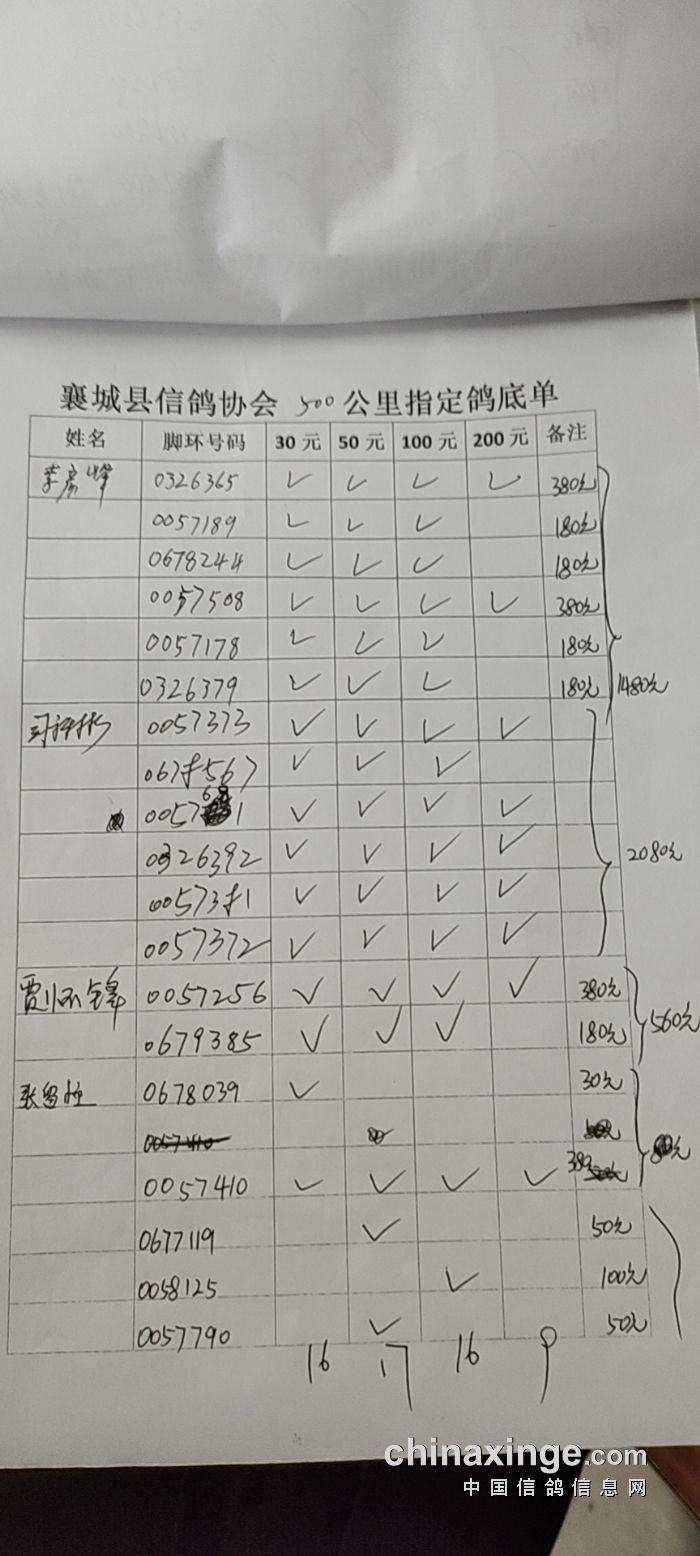 襄城县信鸽协会 500 公里指定鸽底单
姓名 脚环号码 30 元 50 元 100 元 200 元 备注
李彦峰 0326365 ✓ ✓ ✓ ✓ 380元
0057189 ✓ ✓ ✓ 180元
0678244 ✓ ✓ ✓ 180元
0057508 ✓ ✓ ✓ ✓ 380元
0057178 ✓ ✓ ✓ 180元
0326379 ✓ ✓ ✓ 180元 1480元
0057373 ✓ ✓ ✓ ✓
0678567 ✓ ✓ ✓
✓ ✓ ✓ ✓
0326392 ✓ ✓ ✓ ✓ 2080元
0057381 ✓ ✓ ✓ ✓
0057372 ✓ ✓ ✓ ✓
0057256 ✓ ✓ ✓ ✓ 380元
0679385 ✓ ✓ ✓ 180元 560元
0678039 ✓ 30元
0057410 ✓ ✓ ✓ ✓ 380
0677119 ✓ 50元
0058125 ✓ 100元
0057790 ✓ 50元
16 17 16 9
chinaxinge.com
中国信鸽信息网